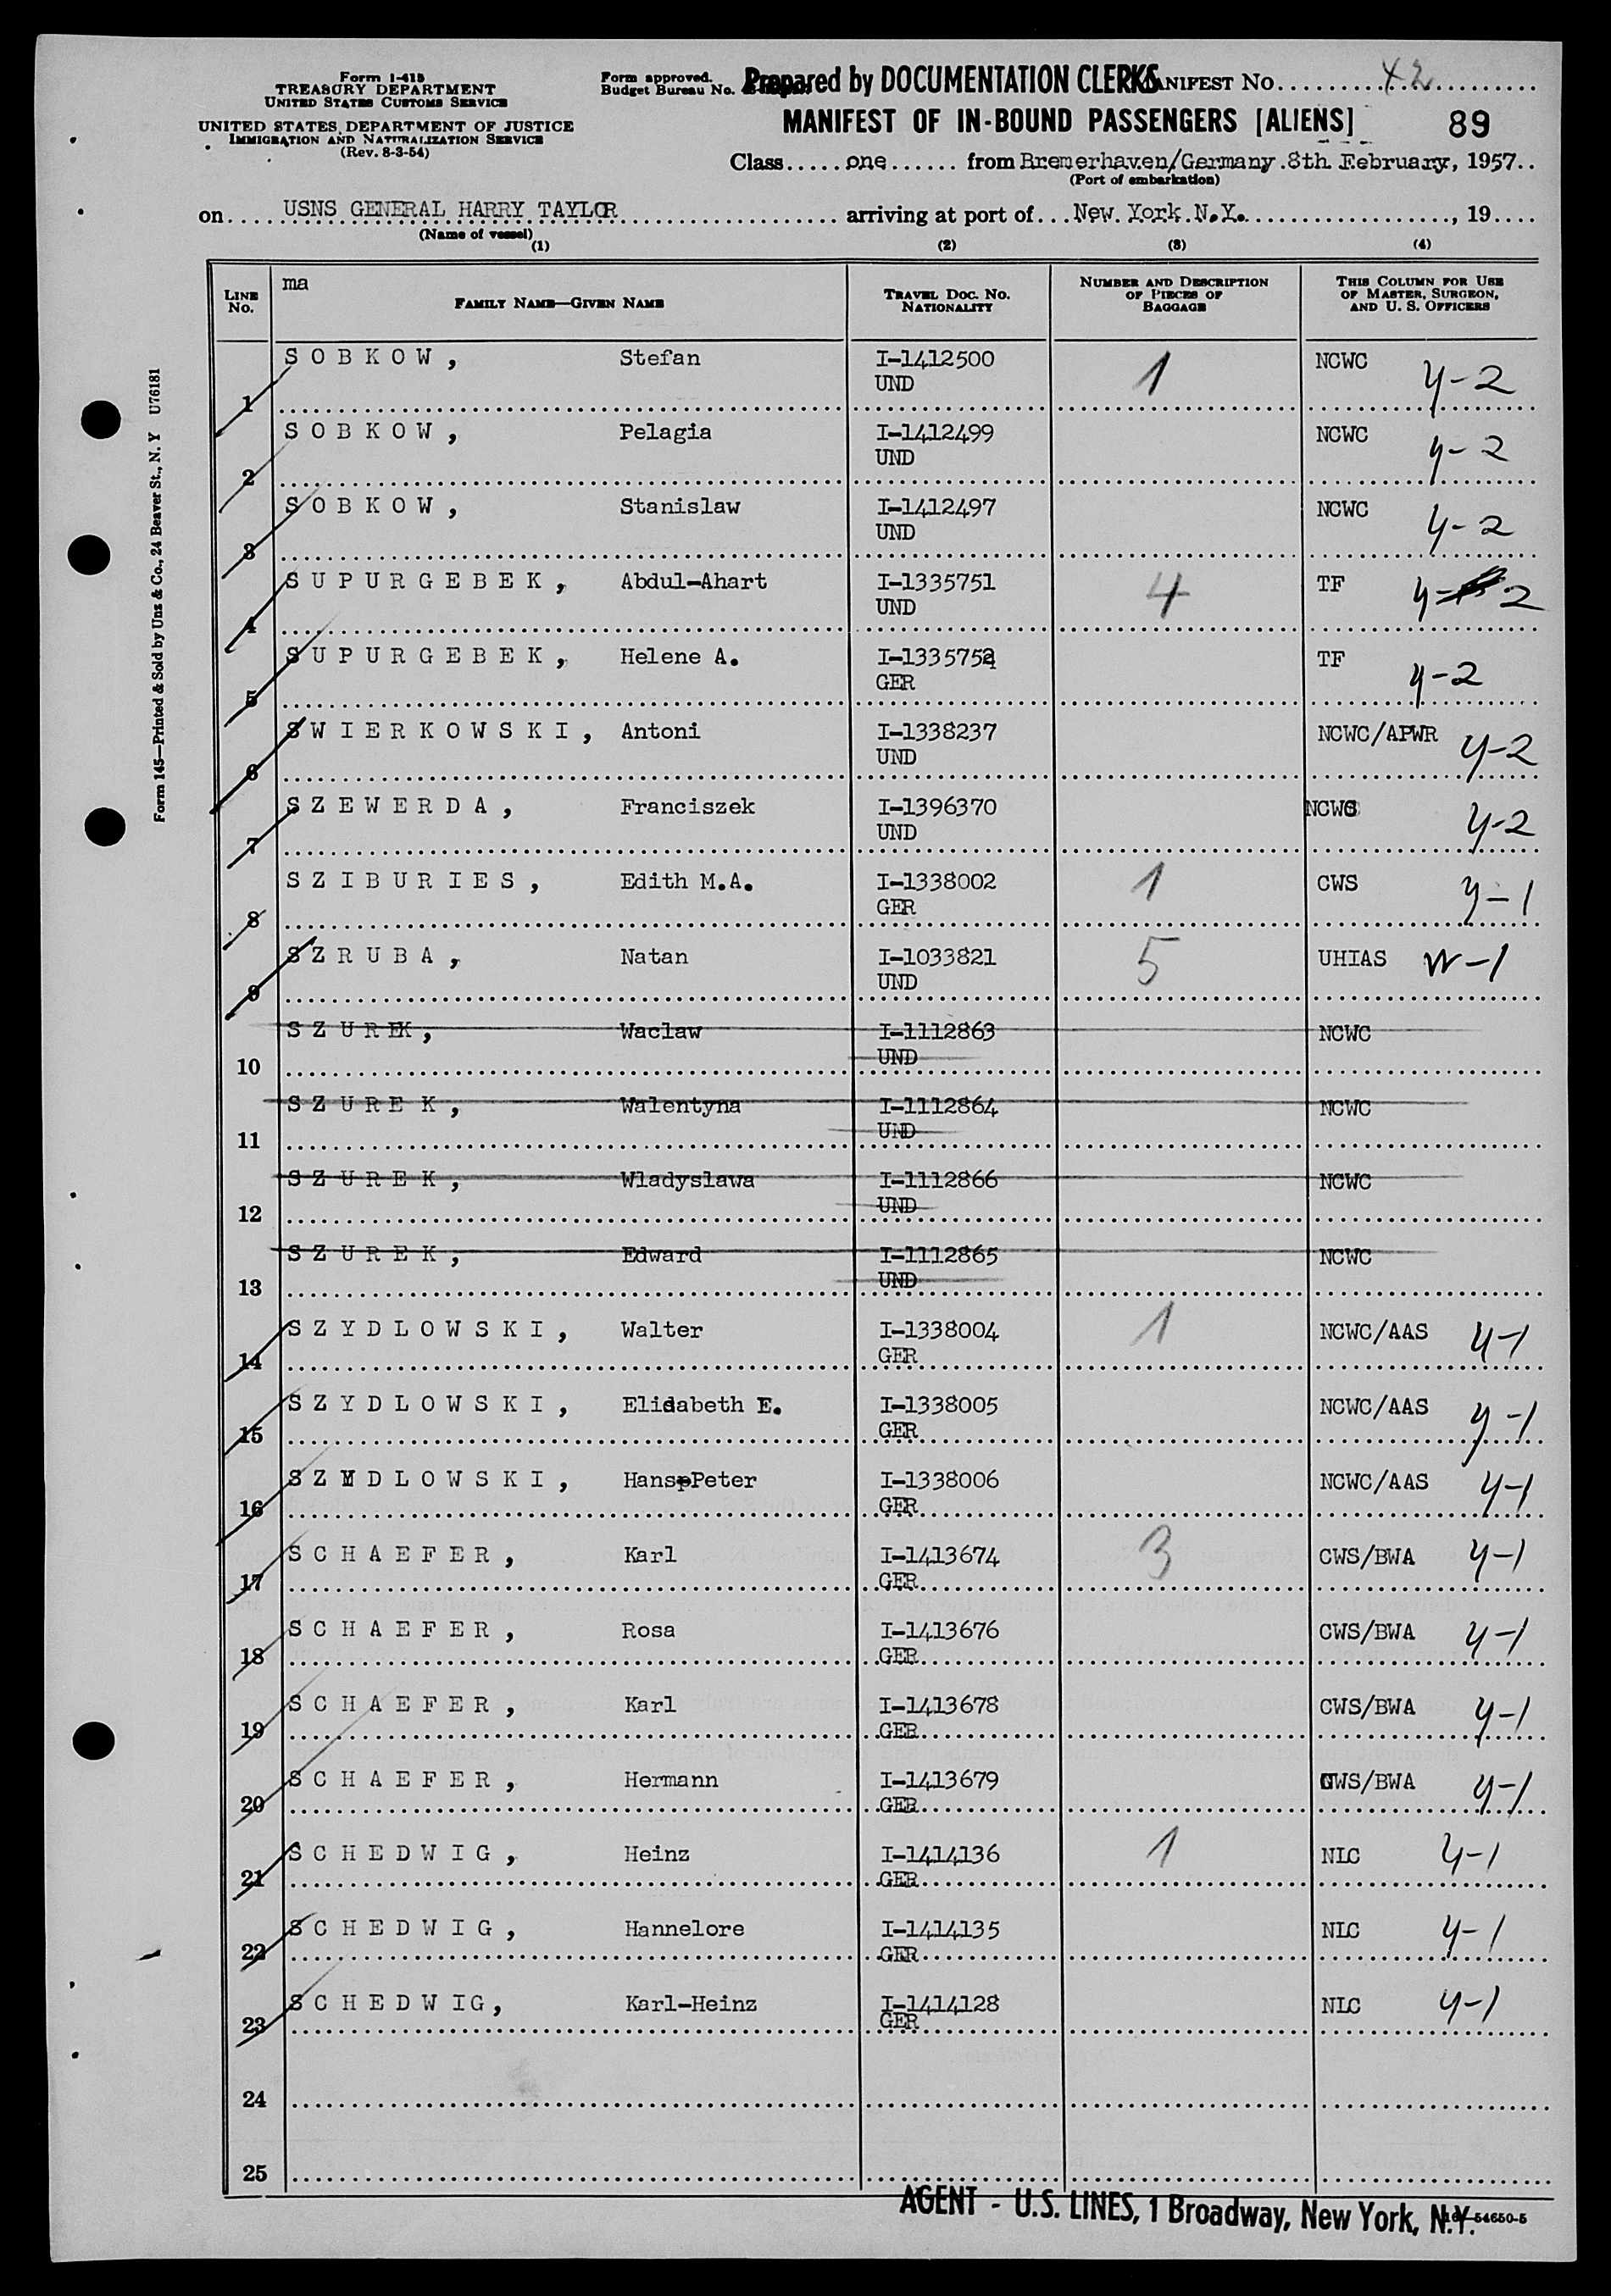 Form I-415
TREASURY DEPARTMENT
UNITED STATES CUSTOMS SERVICE
UNITED STATES DEPARTMENT OF JUSTICE
IMMIGRATION AND NATURALIZATION SERVICE
(Rev. 8-3-54)
Form approved.
Budget Bureau No.
Prepared by DOCUMENTATION CLERKS MANIFEST NO. 42
MANIFEST OF IN-BOUND PASSENGERS [ALIENS] 89
Class one from Bremerhaven/Germany 8th February, 1957
(Port of embarkation)
on USNS GENERAL HARRY TAYLOR arriving at port of New York N.Y., 19
(Name of vessel)
(1) (2) (3) (4)
LINE NO. ma FAMILY NAME—GIVEN NAME TRAVEL DOC. NO. NATIONALITY NUMBER AND DESCRIPTION OF PIECES OF BAGGAGE THIS COLUMN FOR USE OF MASTER, SURGEON, AND U. S. OFFICERS
1 SOBKOW, Stefan I-1412500 UND 1 NCWC y-2
2 SOBKOW, Pelagia I-1412499 UND NCWC y-2
3 SOBKOW, Stanislaw I-1412497 UND NCWC y-2
4 SUPURGEBEK, Abdul-Ahart I-1335751 UND 4 TF y-2
5 SUPURGEBEK, Helene A. I-1335752 GER TF y-2
6 SWIERKOWSKI, Antoni I-1338237 UND NCWC/APWR y-2
7 SZEWERDA, Franciszek I-1396370 UND NCWC y-2
8 SZIBURIES, Edith M.A. I-1338002 GER 1 CWS y-1
9 SZRUBA, Natan I-1033821 UND 5 UHIAS W-1
10 SZUREK, Waclaw I-1112863 UND NCWC
11 SZUREK, Walentyna I-1112864 UND NCWC
12 SZUREK, Wladyslawa I-1112866 UND NCWC
13 SZUREK, Edward I-1112865 UND NCWC
14 SZYDLOWSKI, Walter I-1338004 GER 1 NCWC/AAS y-1
15 SZYDLOWSKI, Elisabeth E. I-1338005 GER NCWC/AAS y-1
16 SZYDLOWSKI, Hans-Peter I-1338006 GER NCWC/AAS y-1
17 SCHAEFER, Karl I-1413674 GER 3 CWS/BWA y-1
18 SCHAEFER, Rosa I-1413676 GER CWS/BWA y-1
19 SCHAEFER, Karl I-1413678 GER CWS/BWA y-1
20 SCHAEFER, Hermann I-1413679 GER CWS/BWA y-1
21 SCHEDWIG, Heinz I-1414136 GER 1 NLC y-1
22 SCHEDWIG, Hannelore I-1414135 GER NLC y-1
23 SCHEDWIG, Karl-Heinz I-1414128 GER NLC y-1
24
25
AGENT - U.S. LINES, 1 Broadway, New York, N.Y. 16-54650-5
Form 145—Printed & Sold by Unz & Co., 24 Beaver St., N. Y U76181